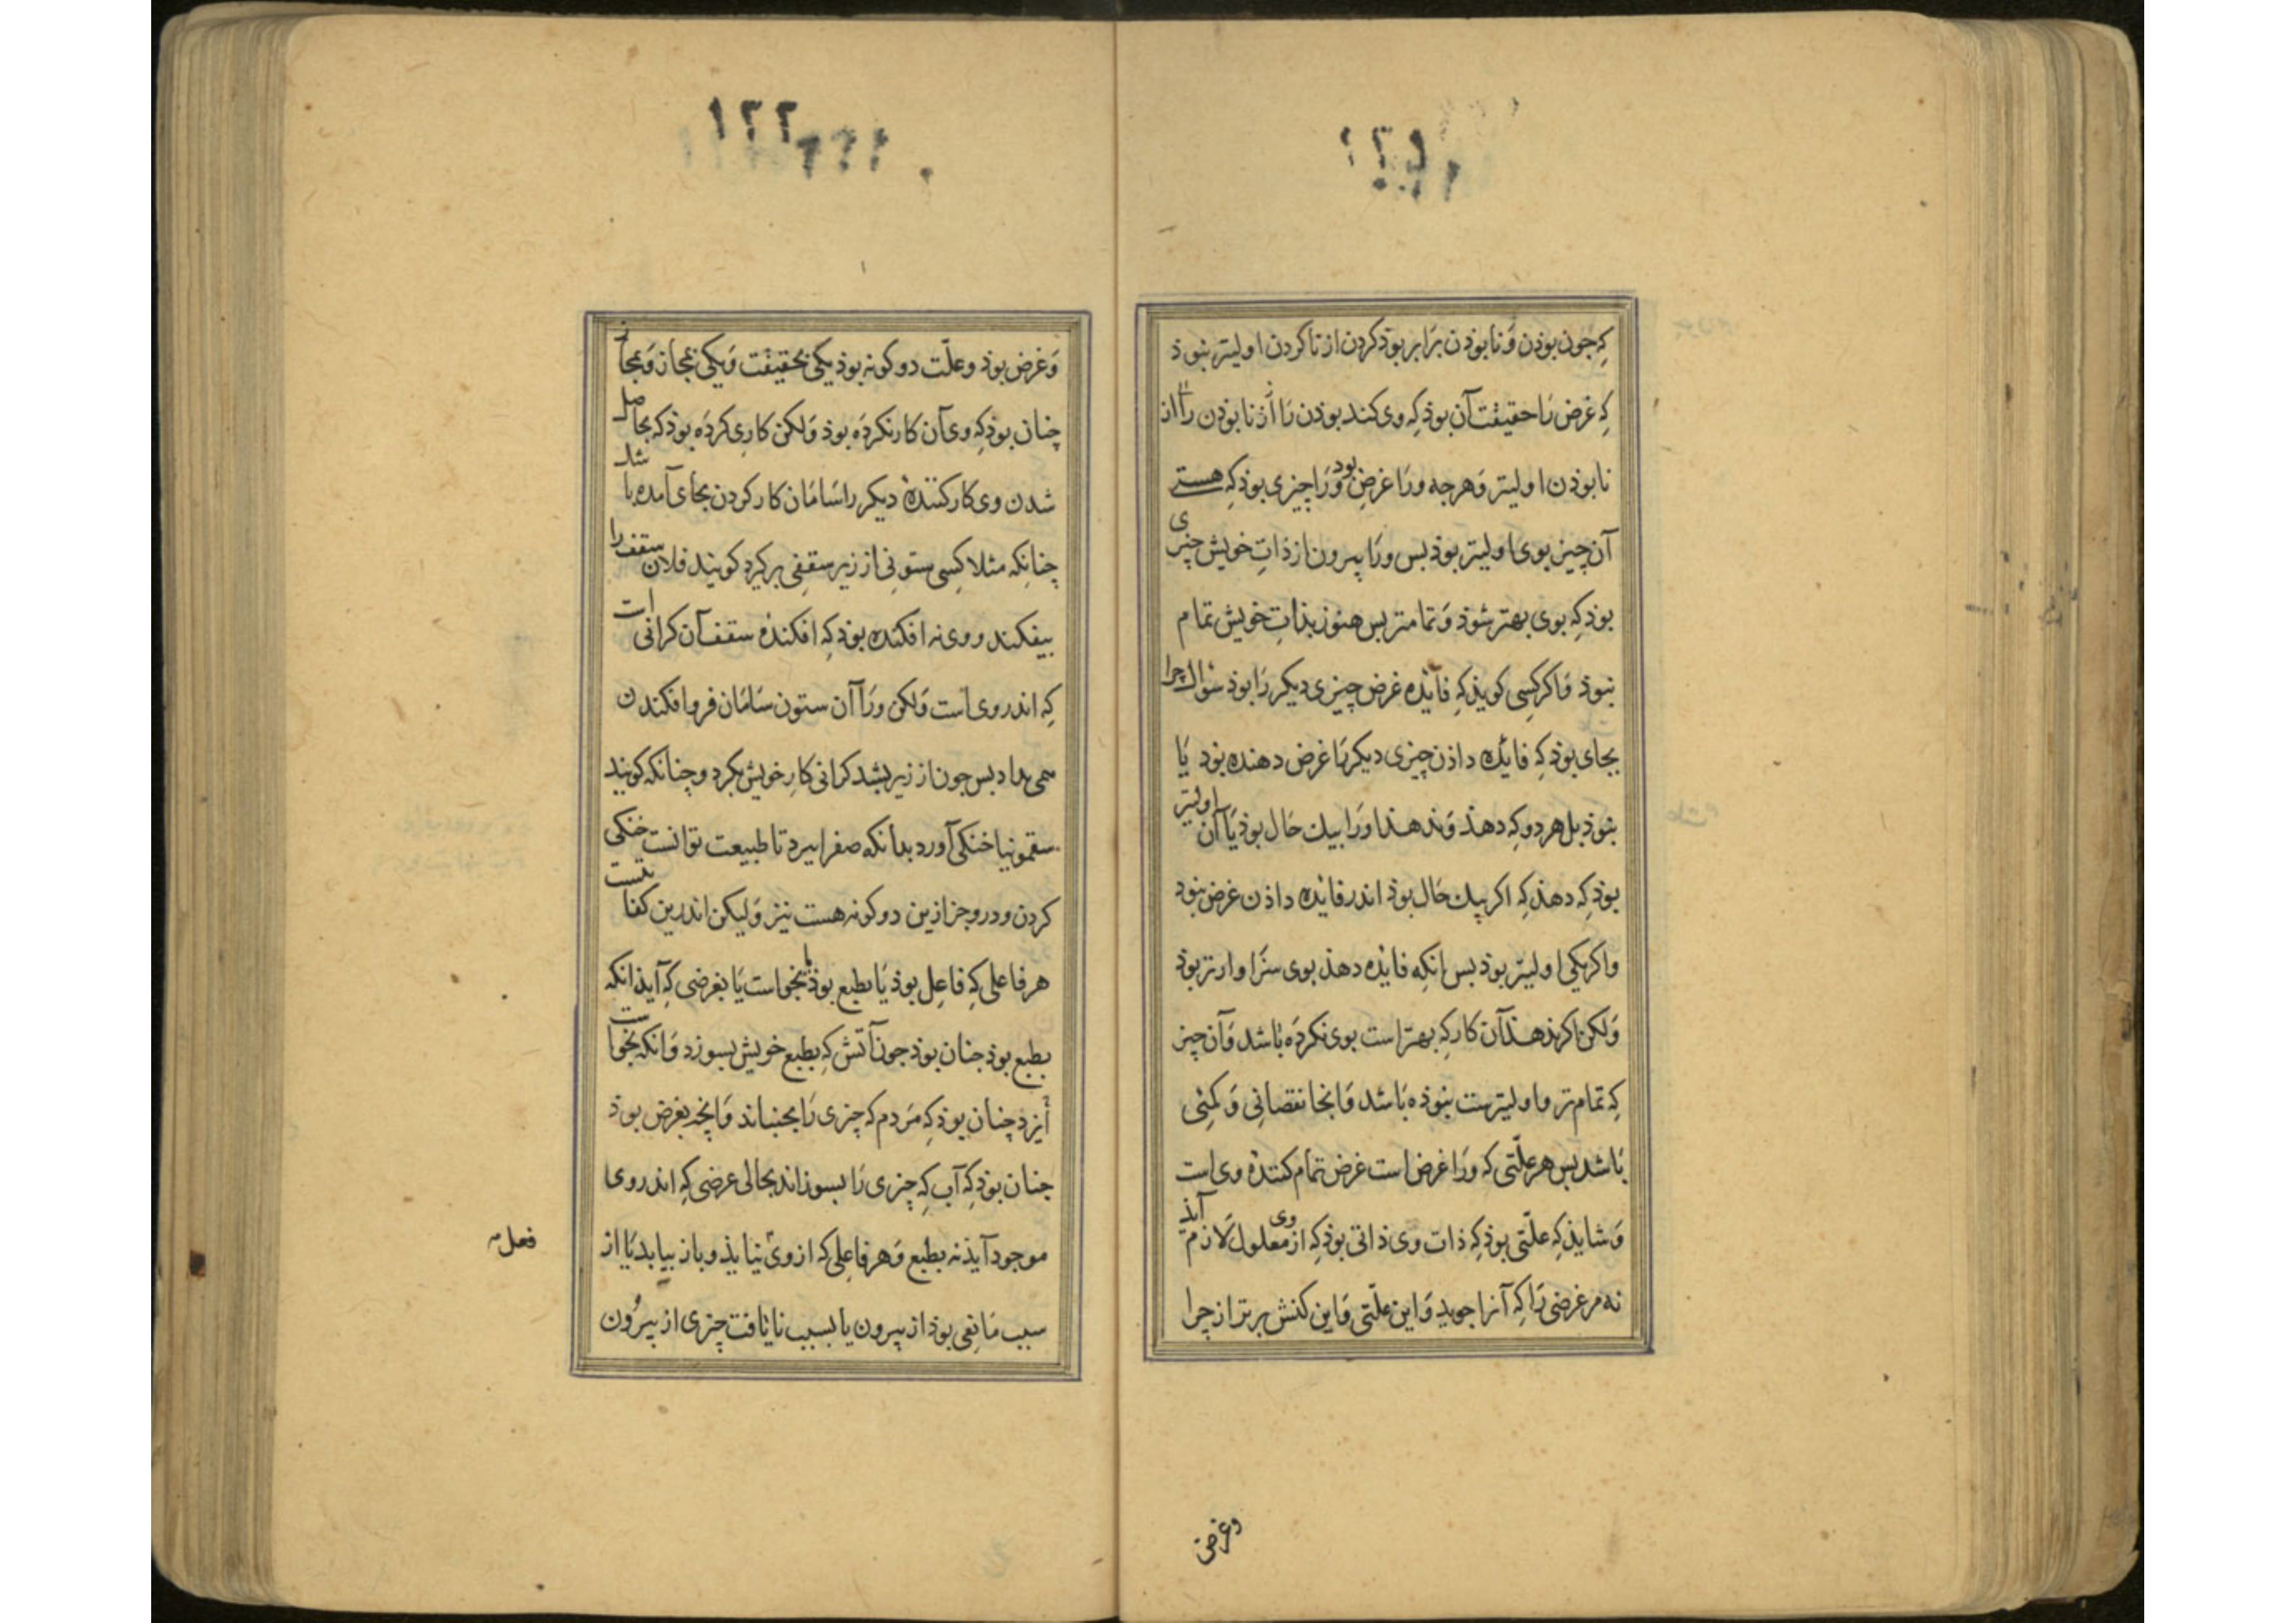 که جون بوذن وَ نابوذن برَابر بوذ کردن از ناکردن اولیتر نبوذ
کِه غرض رَا حقیقت آن بوذ کِه وی کند بوذن رَا از نابوذن رَا از
نابوذن اولیتر وَ هرجه ورَا غرض بود وَرَا چیزی بوذ کِه هستی
آن چیز بوی اولیتر بوذ بس ورَا بیرون از ذاتِ خویش چیزی
بوذ کِه بوی بهتر شوذ وَ تمامتر بس هنوز بذاتِ خویش تمام
نبوذ وَاکر کسِی کویذ کِه فایٔذه غرض چیزی دیکر رَا بوذ سٔوال چرا
بجای بوذ کِه فایٔده داذن چیزی دیکر رَا غرض دهنده بوذ یَا
نبوذ بل هر دو که دهذ وَ ندهذ اورَا بیك حَال بوذ یَا آن اولیتر
بوذ کِه دهذ کِه اکر بیك حَال بوذ اندر فایٔده داذن غرض نبوذ
واکر یکی اولیتر بوذ بس انکِه فایٔده دهذ بوی سزَاوارتر بوذ
وَلکن اکر ندهذ آن کار کِه بهتر است بوی نکردَه بَاشد وَآن چیز
کِه تمام تر و اولیترست نبوذه بَاشد وَ اینجا نقصانی وَ کمئی
بَاشد بس هر علّتی که ورَا غرض است غرض تمام کنندهٔ وی است
وَ شایذ کِه علّتی بوذ کِه ذات وی ذاتی بوذ کِه از وی معلول لَازم آیذ
نه مر غرضی رَا کِه آنرا جوید وَ این علّتی وَ این کنش برتر از چرا
وغرض
وَ غرض بوذ وعلّت دو کونه بوذ یکی بحقیقت وَ یکی بمجاز وَ بمجاز
چنان بوذ کِه وی آن کار نکردَه بوذ وَ لکن کاری کردَه بوذ که بحاصل
شدن وی کارکنندهٔ دیکر را سَامَان کار کردن بجای آمده باشد
چنانِکه مثلا کسِی ستونی از زیر سقفی برکیرد کویند فلان سقف را
بیفکند و وی نه افکنده بوذ که افکندهٔ سقف آن کرانی است
کِه اندر وی است وَلکن ورَا آن ستون سَامَان فرو افکندن
همی نداد بس جون از زیر بشد کرانی کارِ خویش بکرد و چنانکه کویند
سقمونیا خنکی آورد بدانکه صفرا ببرد تا طبیعت توانست خنکی
کردن و درو جز ازین دو کونه هست نیز وَ لیکن اندرین کفایتست
هر فاعلی کِه فاعِل بوذ یَا بطبع بوذ یا بخواست یَا بغرضی کِه آیذ انکه
بطبع بوذ جنان بوذ جون آتش کِه بطبع خویش بسوزد وَانکه بخواست
اُیزد چنان بوذ کِه مَردم که چیزی رَا بجنباند وَ انچه بغرض بوذ
جنان بوذ کِه آب کِه چیزی رَا بسوزاند بحالی عرضی کِه اندر وی
موجود آیذ نه بطبع وَ هر فاعِلی که از وی نیایذ و باز بیاید یَا از
فعل
سبب مَانِعی بوذ از بیرون یا بسبب نایافت چیزی از بیرُون